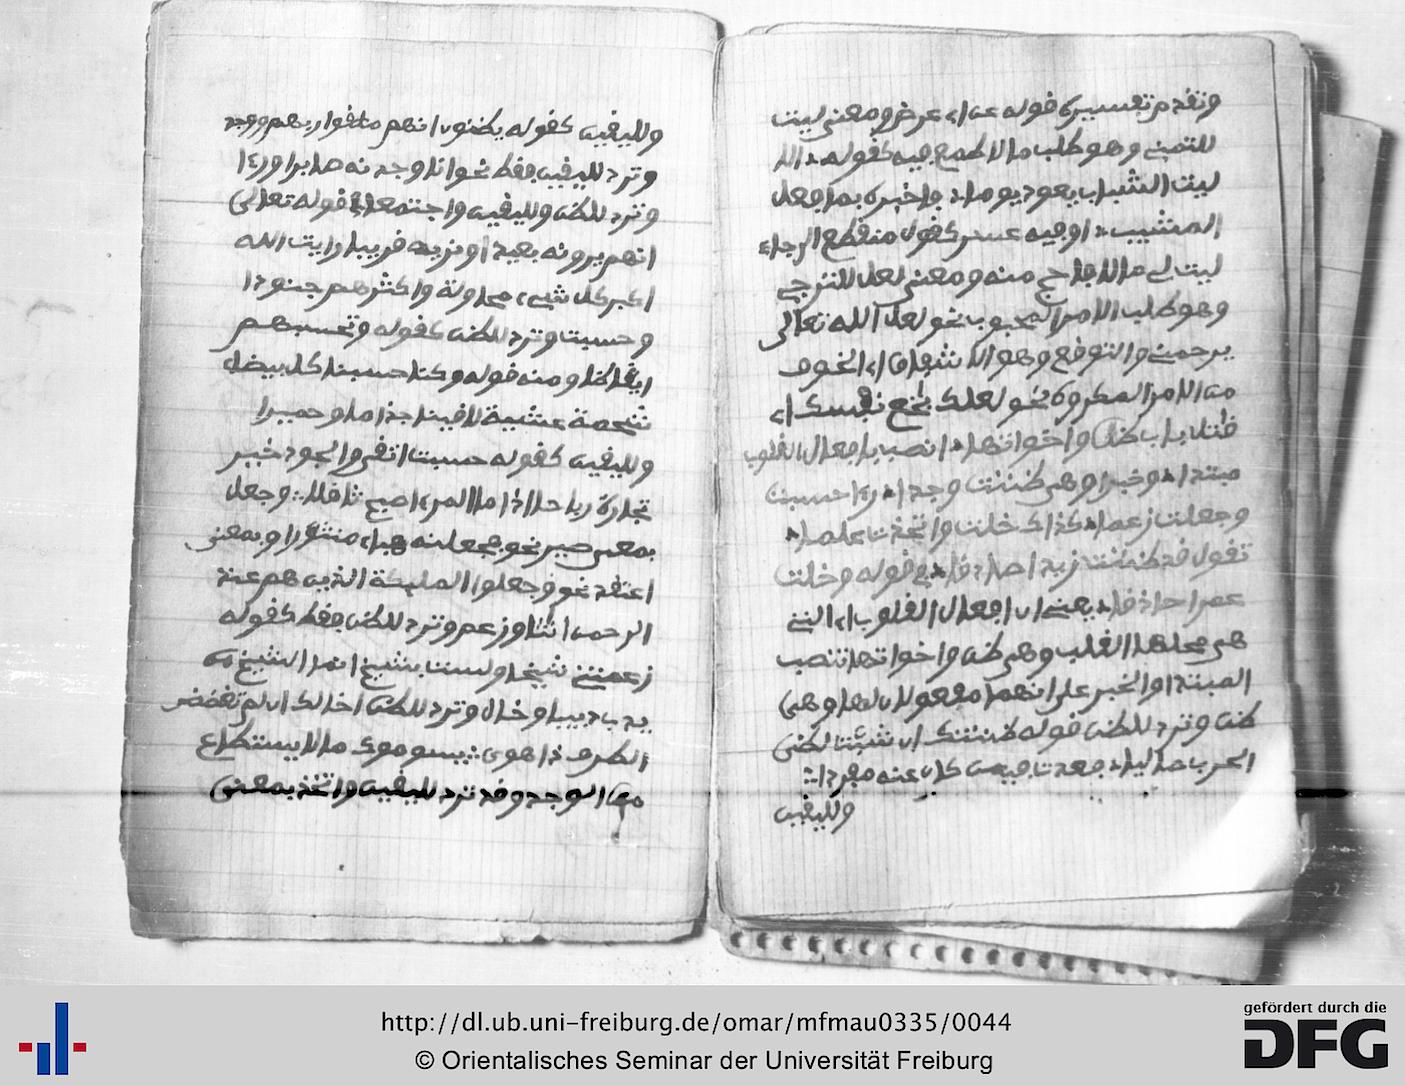 وتقدم تفسيره قوله عن اي عرض ومعنى ليت
للتمني وهو طلب ما لا طمع فيه كقوله الا
ليت الشباب يعود يوما فاخبره بما فعل
المشيب او فيه عسر كقول منقطع الرجاء
ليت لي مالا فاحج منه ومعنى لعل للترجي
وهو طلب الامر المحبوب نحو لعل الله تعالى
يرحمني والتوقع وهو الاشفاق اي الخوف
من الامر المكروه نحو لعلك بخع نفسك اي
قتلا باب ظن واخواتها انصب بافعال القلوب
مبتدا وخبرا وهي ظننت وجدا راى حسبت
وجعلت زعما كذاك خلت واتخذت علما
تقول قد ظننت زيدا صادقا في قوله وخلت
عمرا حاذقا يعني ان افعال القلوب اي التي
هي محلها القلب وهي ظن واخواتها تنصب
المبتدا والخبر على انهما مفعولان لها وهي
ظن وترد للظن قوله ظننتك ان شبت لظى
الحرب صاليا فعدت فيمن كان عنه مفردا
ولليقين
ولليقين كقوله يظنون انهم ملاقوا ربهم ووجد
وترد لليقين فقط نحو انا وجدنه صابرا وراى
وترد للظن ولليقين واجتمعا في قوله تعالى
انهم يرونه بعيدا ونريه قريبا رايت الله
اكبر كل شيء محاولة واكثرهم جنودا
وحسبت وترد للظن كقوله وتحسبهم
ايقاظا ومنه قوله وكنا حسبنا كل بيضاء
شحمة عشية لاقينا جذاما وحميرا
ولليقين كقوله حسبت التقى والجود خير
تجارة رباحا اذا ما المرء اصبح ثاقلا وجعل
بمعنى صير نحو فجعلنه هباء منثورا وبمعنى
اعتقد نحو وجعلوا المليكة الذين هم عند
الرحمن انثا وزعم وترد للظن فقط كقوله
زعمتني شيخا ولست بشيخ انما الشيخ من
يدب دبيبا وخال وترد للظن اخالك ان لم تغضض
الطرف ذا هوى يسومك ما لا يستطاع
من الوجد وقد ترد لليقين واتخذ بمعنى
http://dl.ub.uni-freiburg.de/omar/mfmau0335/0044
© Orientalisches Seminar der Universität Freiburg
gefördert durch die
DFG